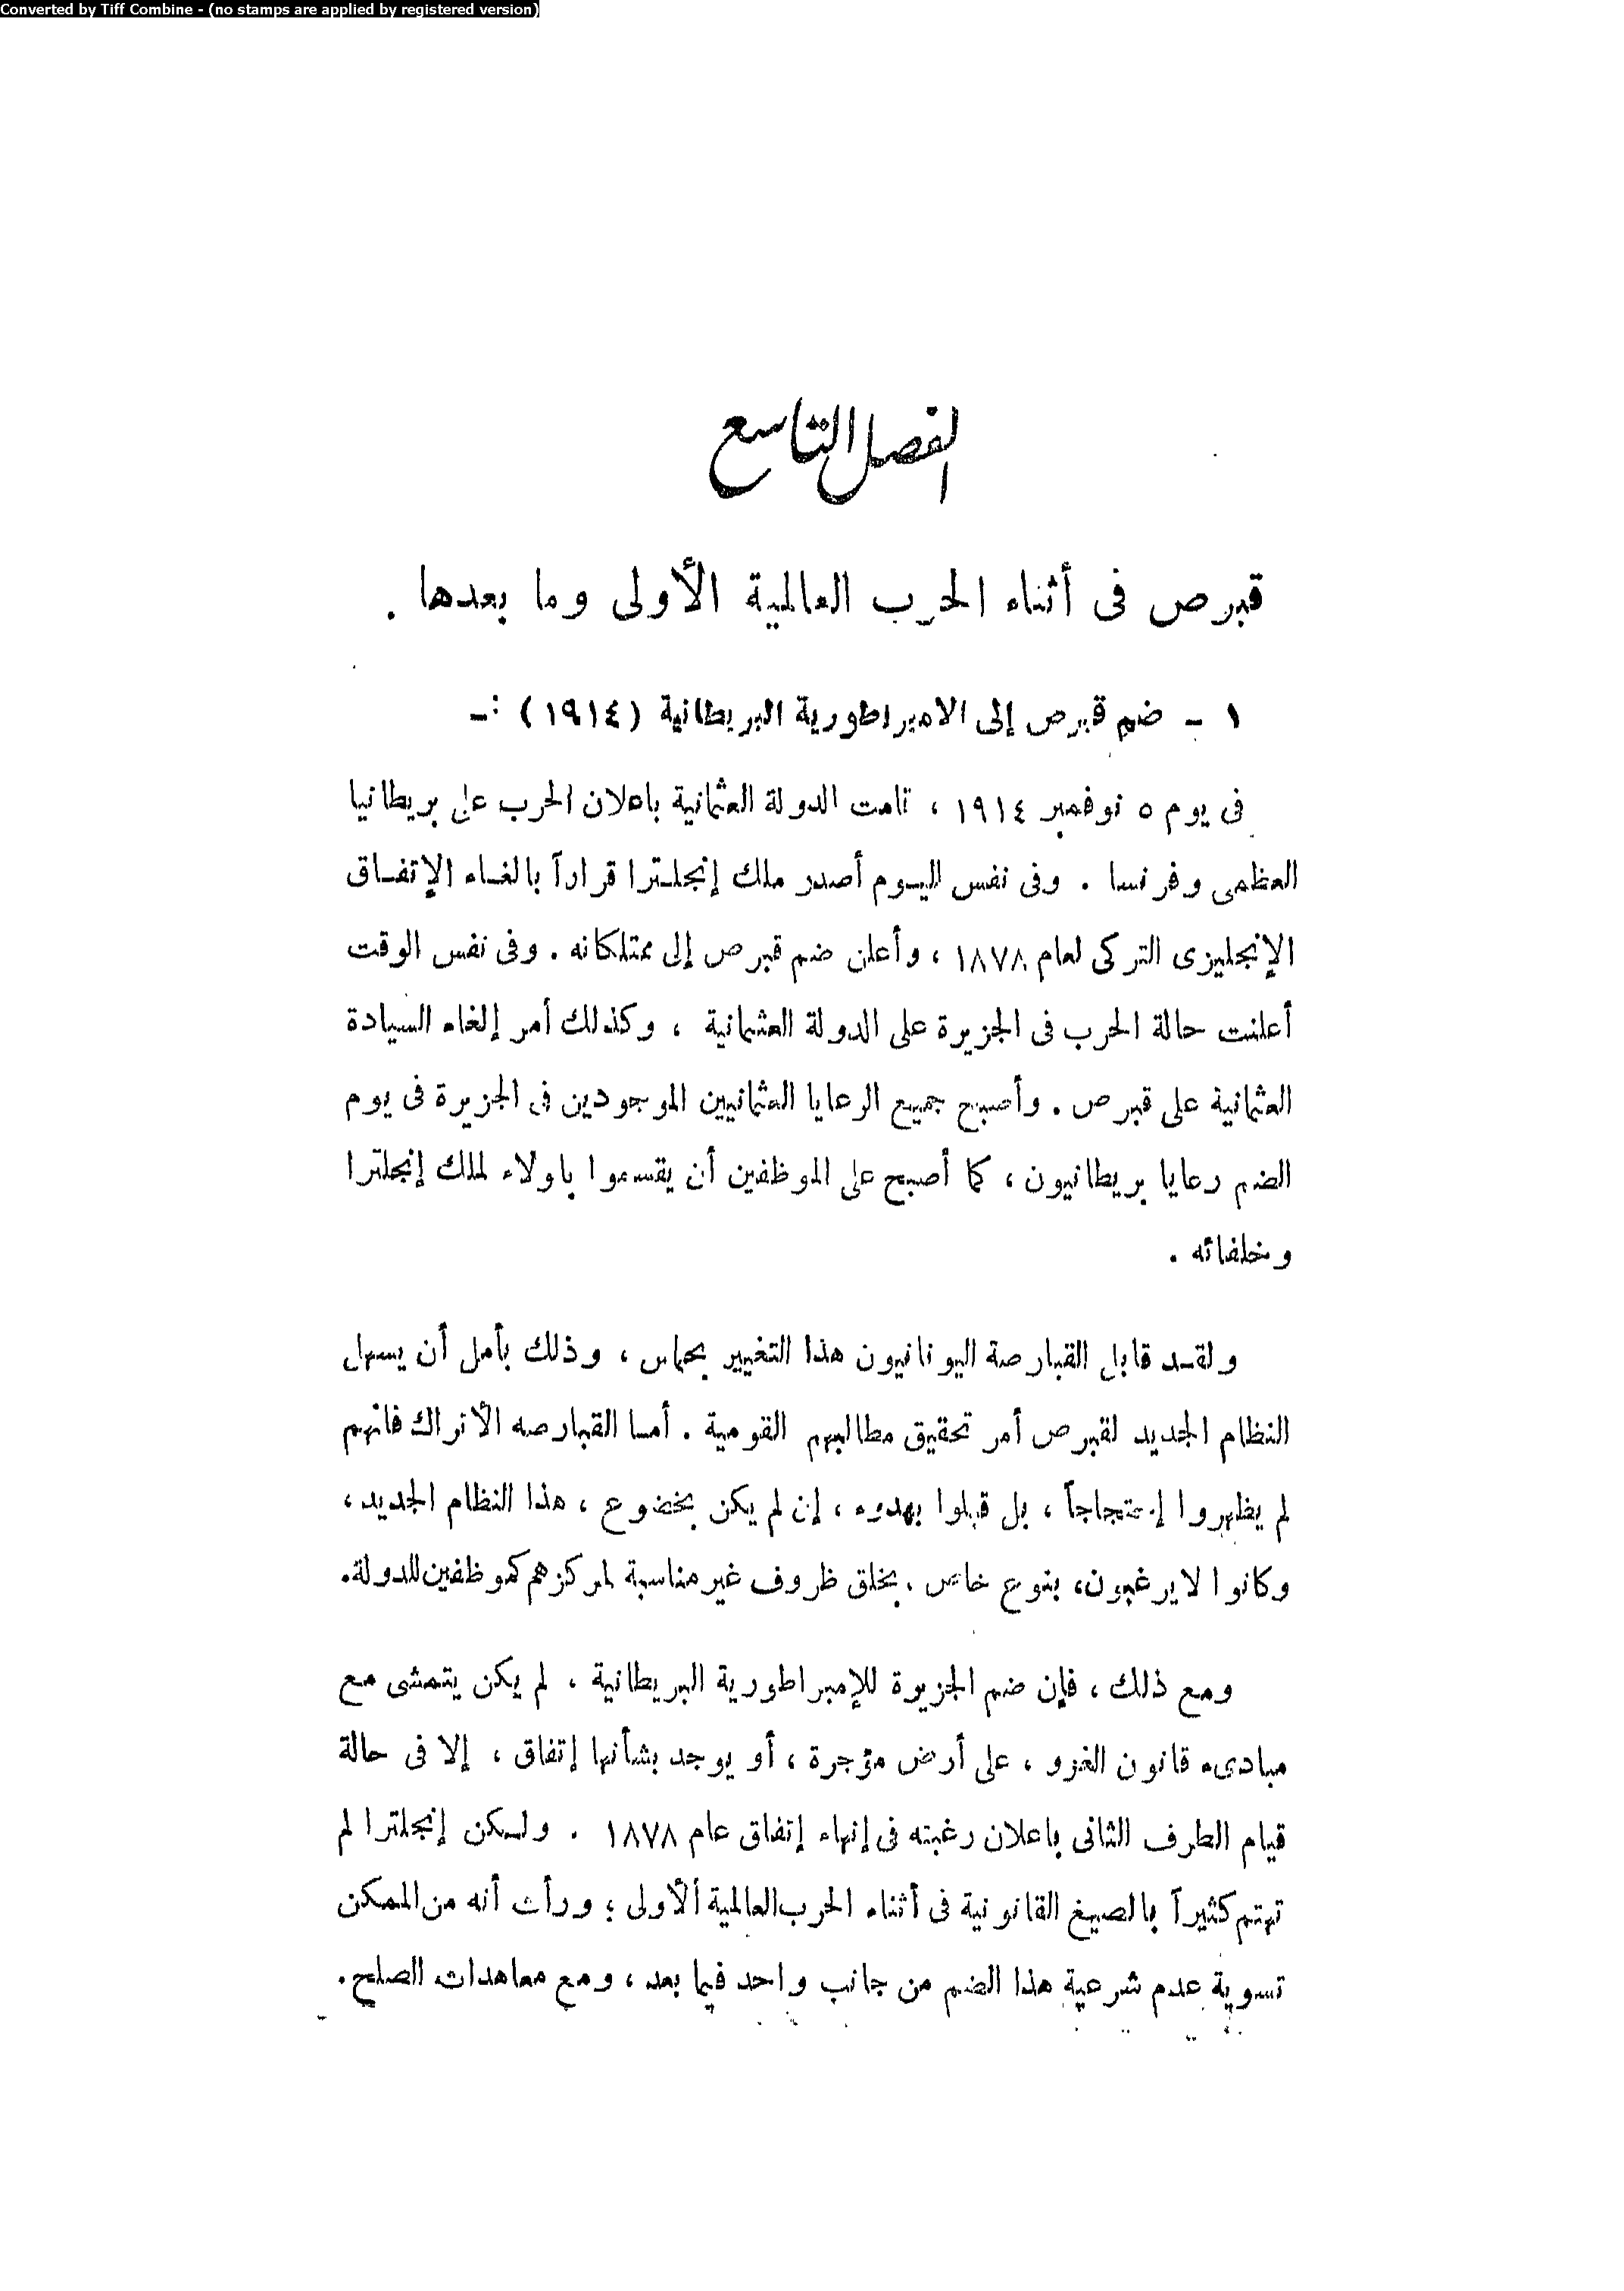 Converted by Tiff Combine - (no stamps are applied by registered version)
الفصل التاسع
قبرص فى أثناء الحرب العالمية الأولى وما بعدها .
١ - ضم قبرص إلى الامبراطورية البريطانية (١٩١٤) :-
فى يوم ٥ نوفمبر ١٩١٤ ، قامت الدولة العثمانية باعلان الحرب على بريطانيا
العظمى وفرنسا . وفى نفس اليوم أصدر ملك إنجلترا قراراً بالغاء الإتفاق
الإنجليزى التركى لعام ١٨٧٨ ، وأعلن ضم قبرص إلى ممتلكاته . وفى نفس الوقت
أعلنت حالة الحرب فى الجزيرة على الدولة العثمانية ، وكذلك أمر إلغاء السيادة
العثمانية على قبرص . وأصبح جميع الرعايا العثمانيين الموجودين فى الجزيرة فى يوم
الضم رعايا بريطانيون ، كما أصبح على الموظفين أن يقسموا باولاء لملك إنجلترا
وخلفائه .
ولقد قابل القبارصة اليونانيون هذا التغيير بحماس ، وذلك بأمل أن يسهل
النظام الجديد لقبرص أمر تحقيق مطالبهم القومية . أما القبارصه الأتراك فانهم
لم يظهروا إحتجاجاً ، بل قبلوا بهدوء ، إن لم يكن بخضوع ، هذا النظام الجديد ،
وكانوا لا يرغبون ، بنوع خاص ، بخلق ظروف غير مناسبة لمركزهم كموظفين للدولة .
ومع ذلك ، فإن ضم الجزيرة للإمبراطورية البريطانية ، لم يكن يتمشى مع
مبادىء قانون الغزو ، على أرض مؤجرة ، أو يوجد بشأنها إتفاق ، إلا فى حالة
قيام الطرف الثانى باعلان رغبته فى إنهاء إتفاق عام ١٨٧٨ . ولكن إنجلترا لم
تهتم كثيراً بالصيغ القانونية فى أثناء الحرب العالمية الأولى ؛ ورأت أنه من الممكن
تسوية عدم شرعية هذا الضم من جانب واحد فيما بعد ، ومع معاهدات الصلح .